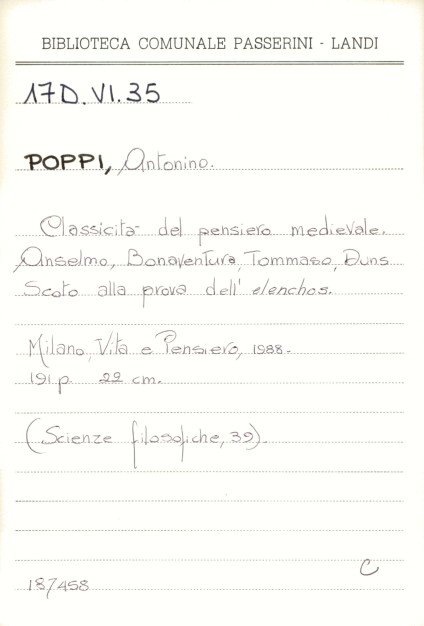 BIBLIOTECA COMUNALE PASSERINI - LANDI
17D.VI.35
POPPI, Antonino.
Classicità del pensiero medievale.
Anselmo, Bonaventura, Tommaso, Duns
Scoto alla prova dell'elenchos.
Milano, Vita e Pensiero, 1988.
191 p. 22 cm.
(Scienze filosofiche, 39).
C
187458